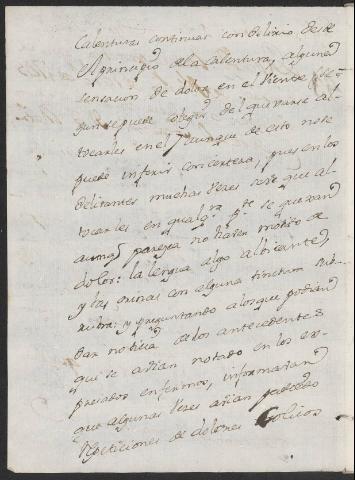 Calenturas continuas con delirio desde
el principio de la calentura, alguna
sensacion de dolor en el vientre, se-
gun se puede colegir del quexarse al
tocarles en el; aunque de esto no se
puede inferir con certeza, pues en los
delirantes muchas veses se ve que al
tocarles en qualqr. pte. se quexan
aunq. paresca no haver motivo de
dolor: la lengua algo albicante,
y las orinas con alguna tinctura sub-
rubra: y preguntando a los que podian
dar noticia de los antecedentes
qe. se avian notado en los ex-
presados enfermos, informaran
que algunas veses avian padecido
repeticiones de dolores Colicos